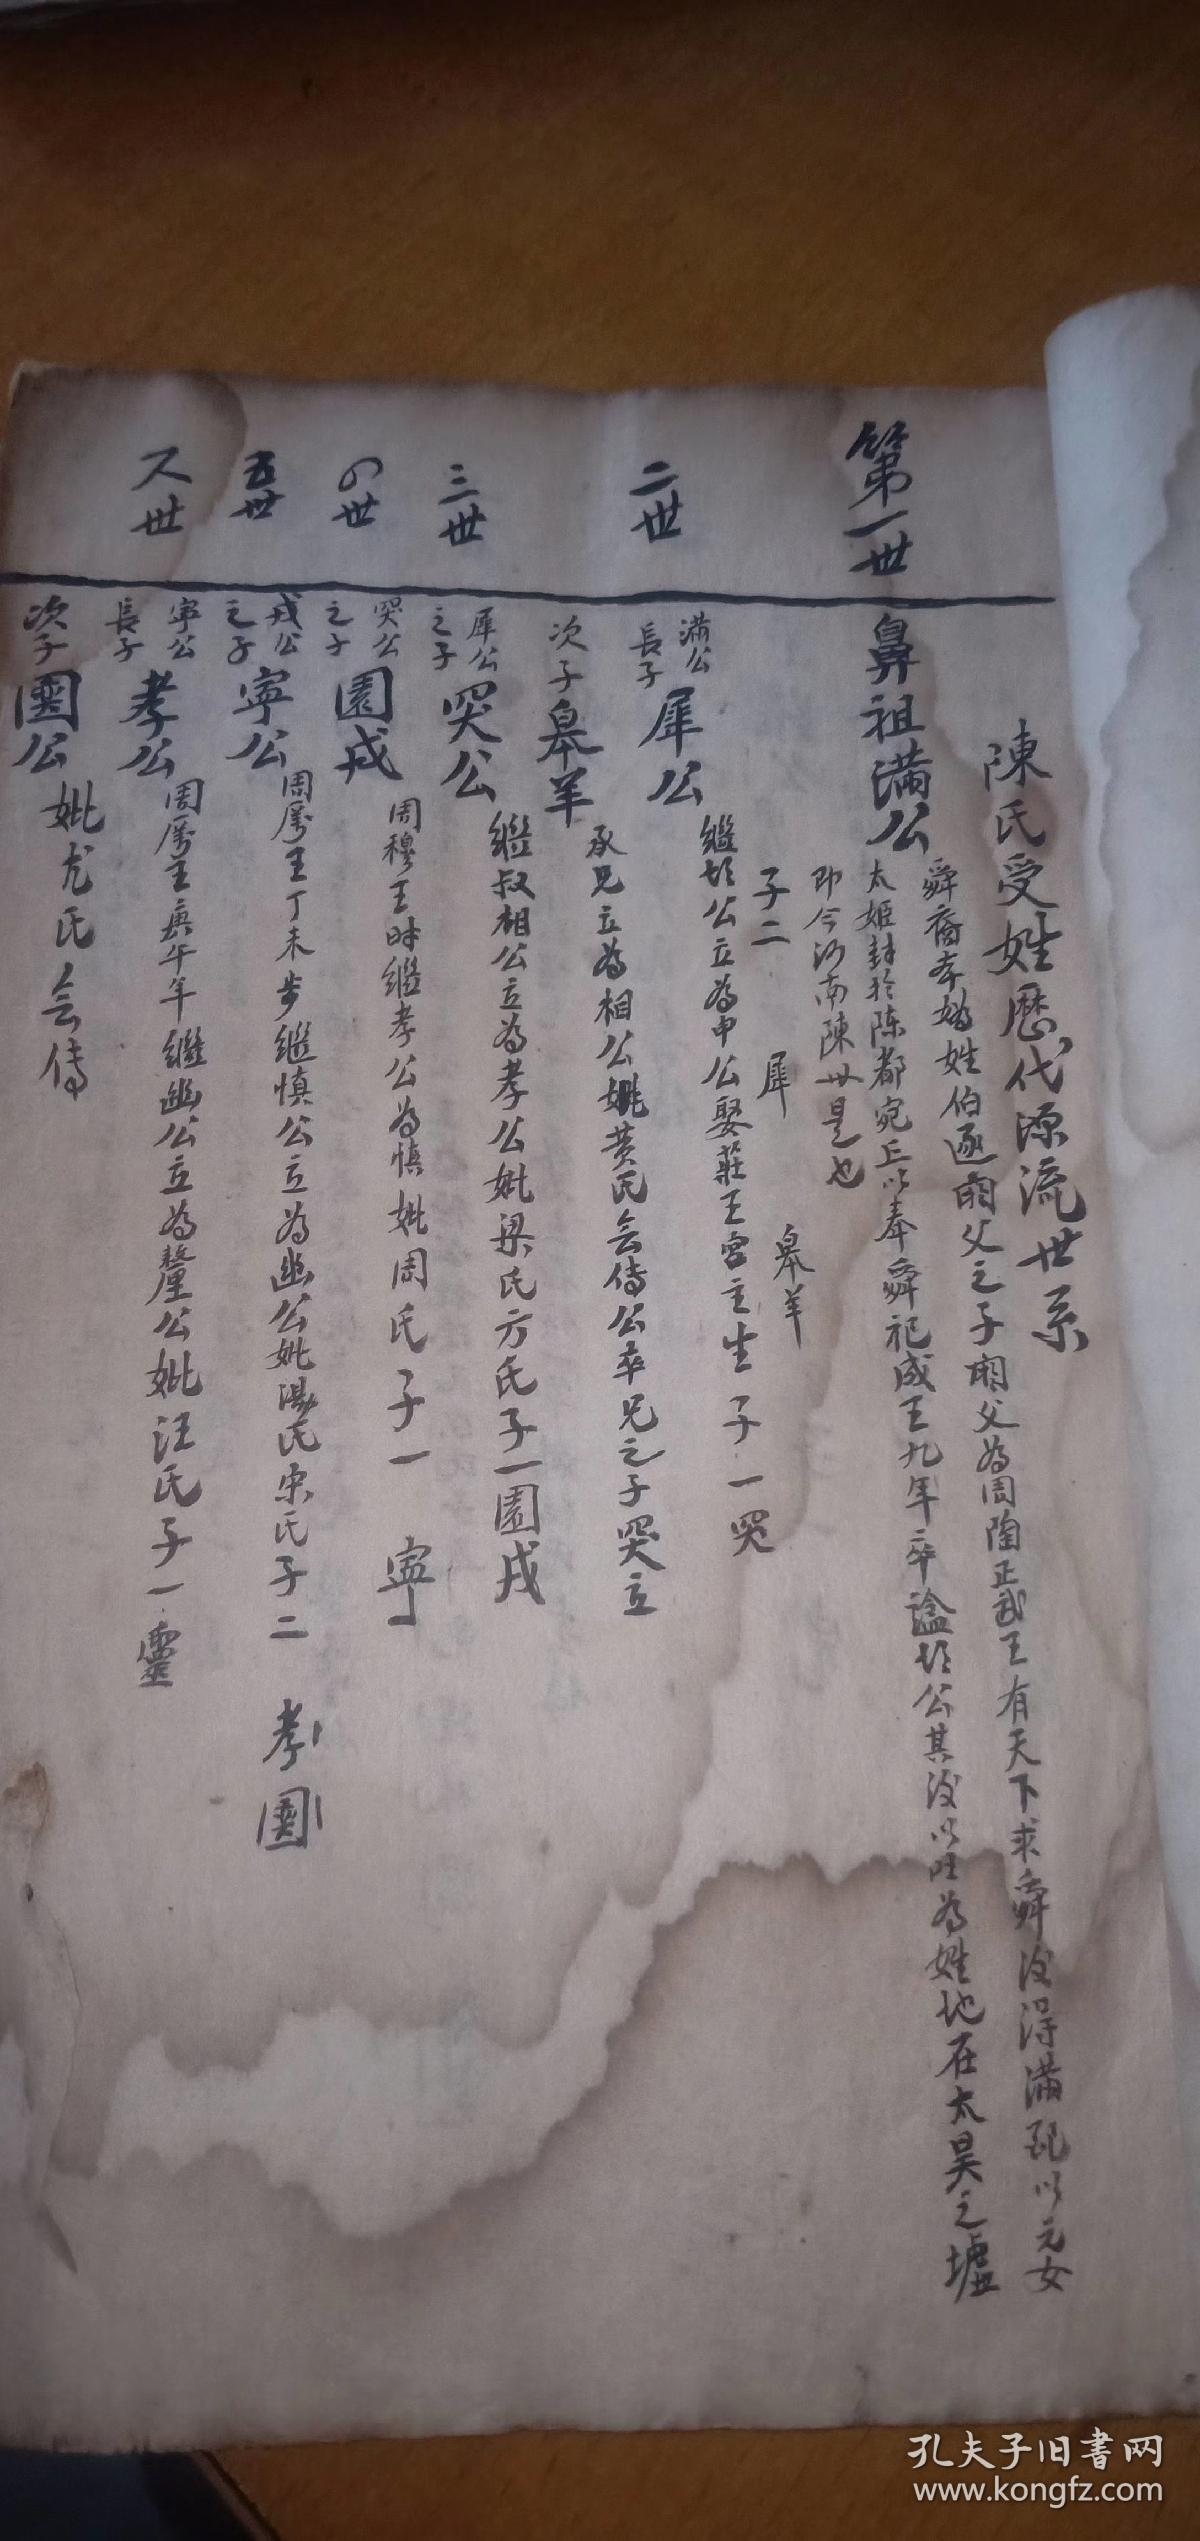 陳氏受姓歷代源流世系
第一世
鼻祖滿公
舜裔本媯姓伯逐閼父之子閼父為周陶正武王有天下求舜後得滿配以元女
太姬封於陈都宛丘以奉舜祀成王九年卒謚胡公其後以国為姓地在太昊之墟
即今河南陳州是也
子二 犀 皋羊
二世
滿公
長子
犀公
繼胡公立為申公娶莊王宮主生子一突
次子
皋羊
承兄立為相公妣黄氏会傳公卒兄之子突立
三世
犀公
之子
突公
繼叔相公立為孝公妣梁氏方氏子一園戎
四世
突公
之子
園戎
周穆王時繼孝公為慎妣周氏子一 寧
五世
戎公
之子
寧公
周厲王丁未步繼慎公立為幽公妣湯氏宋氏子二 孝 圉
六世
寧公
長子
孝公
周厲王庚午年繼幽公立為釐公妣汪氏子一靈
次子
圉公
妣尤氏会傳
孔夫子旧書网
www.kongfz.com